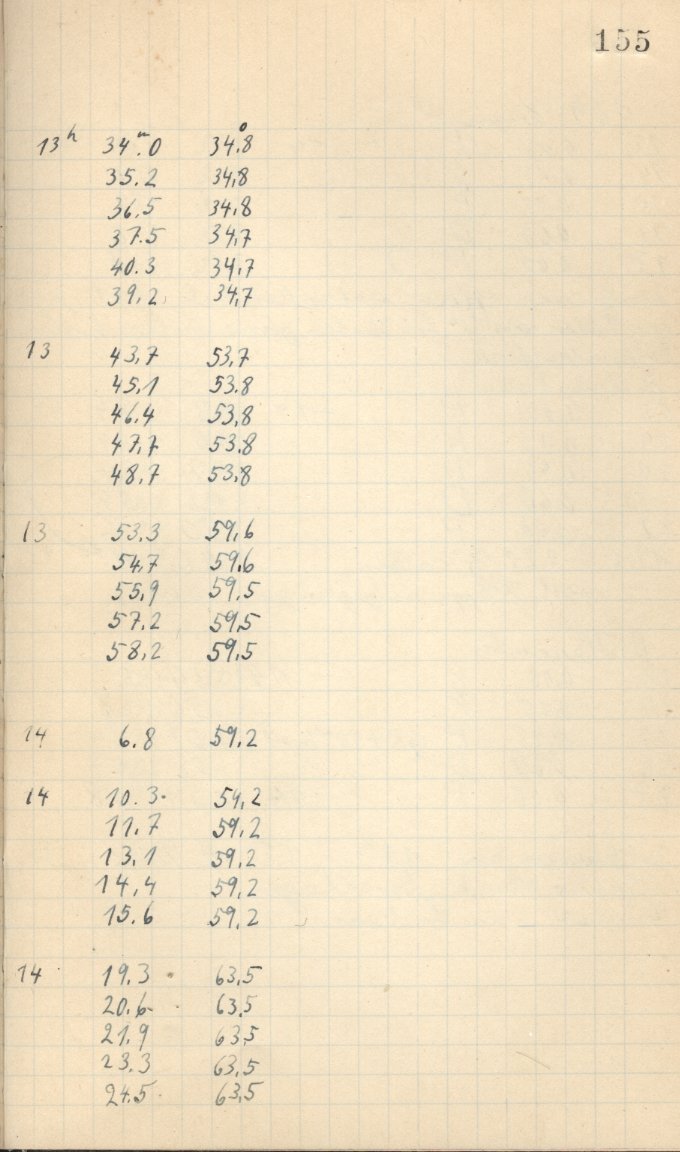 155
13h 34m.0 34°.8
35.2 34,8
36.5 34.8
37.5 34,7
40.3 34,7
39,2 34,7
13 43,7 53,7
45,1 53.8
46.4 53,8
47,7 53.8
48,7 53,8
13 53.3 59,6
54,7 59,6
55,9 59,5
57.2 59,5
58,2 59,5
14 6.8 59,2
14 10.3 54,2
11.7 59,2
13,1 59,2
14,4 59,2
15.6 59,2
14 19.3 63,5
20.6 63,5
21.9 63,5
23.3 63,5
24.5 63,5